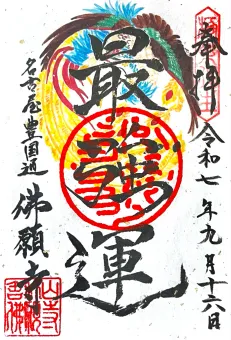 奉拝
令和七年九月十六日
最强運
名古屋豊国通
佛願寺